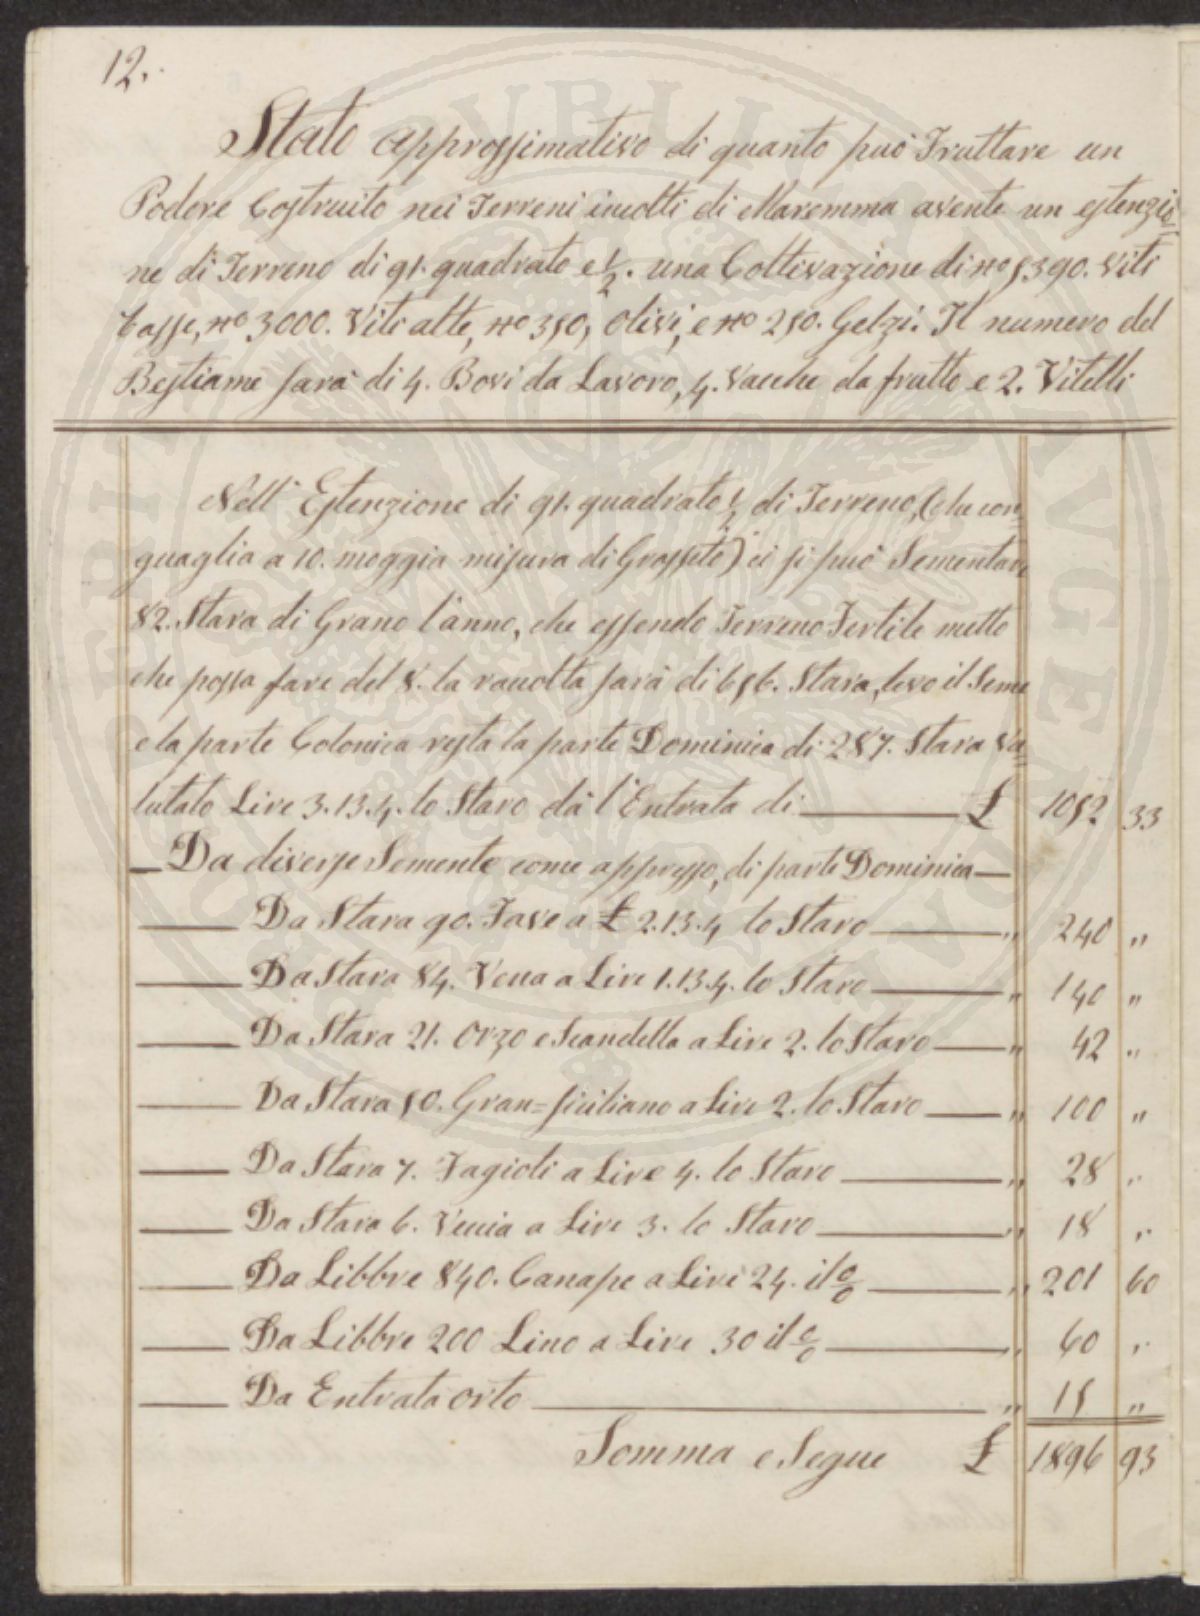 12.
Stato approssimativo di quanto può Fruttare un
Podere Costruito nei Terreni incolti di Maremma avente un estenzio=
ne di Terreno di 91. quadrato e ½. una Coltivazione di n° 5390. Viti
basse, n° 3000. Viti alte, n° 350, Olivi, e n° 250. Gelzi. Il numero del
Bestiame sarà di 4. Bovi da Lavoro, 4. Vacche da frutto e 2. Vitelli
Nell' Estenzione di 91. quadrato ½ di Terreno, (che con=
guaglia a 10. moggia misura di Grosseto) ci si può Sementare
82. Stara di Grano l'anno, che essendo Terreno Fertile metto
che possa fare del 8. la raccolta sarà di 656. Stara, levo il Seme
e la parte Colonica resta la parte Dominica di 287. Stara va=
lutato Lire 3.13.4. lo Staro dà l'Entrata di £ 1052 33
Da diverse Semente come appresso, di parte Dominica
Da Stara 90. Fave a £ 2.13.4 lo Staro " 240 "
Da Stara 84. Vena a Lire 1.13.4. lo Staro " 140 "
Da Stara 21. Orzo e Scandella a Lire 2. lo Staro " 42 "
Da Stara 50. Gran=siciliano a Lire 2. lo Staro " 100 "
Da Stara 7. Fagioli a Lire 4. lo Staro " 28 "
Da Stara 6. Veccia a Lire 3. lo Staro " 18 "
Da Libbre 840. Canape a Lire 24. il % " 201 60
Da Libbre 200 Lino a Lire 30 il % " 60 "
Da Entrata orto " 15 "
Somma e Segue £ 1896 93